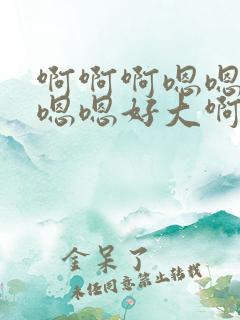 啊啊啊嗯嗯
嗯嗯好大啊
金呆了
未经同意禁止转载